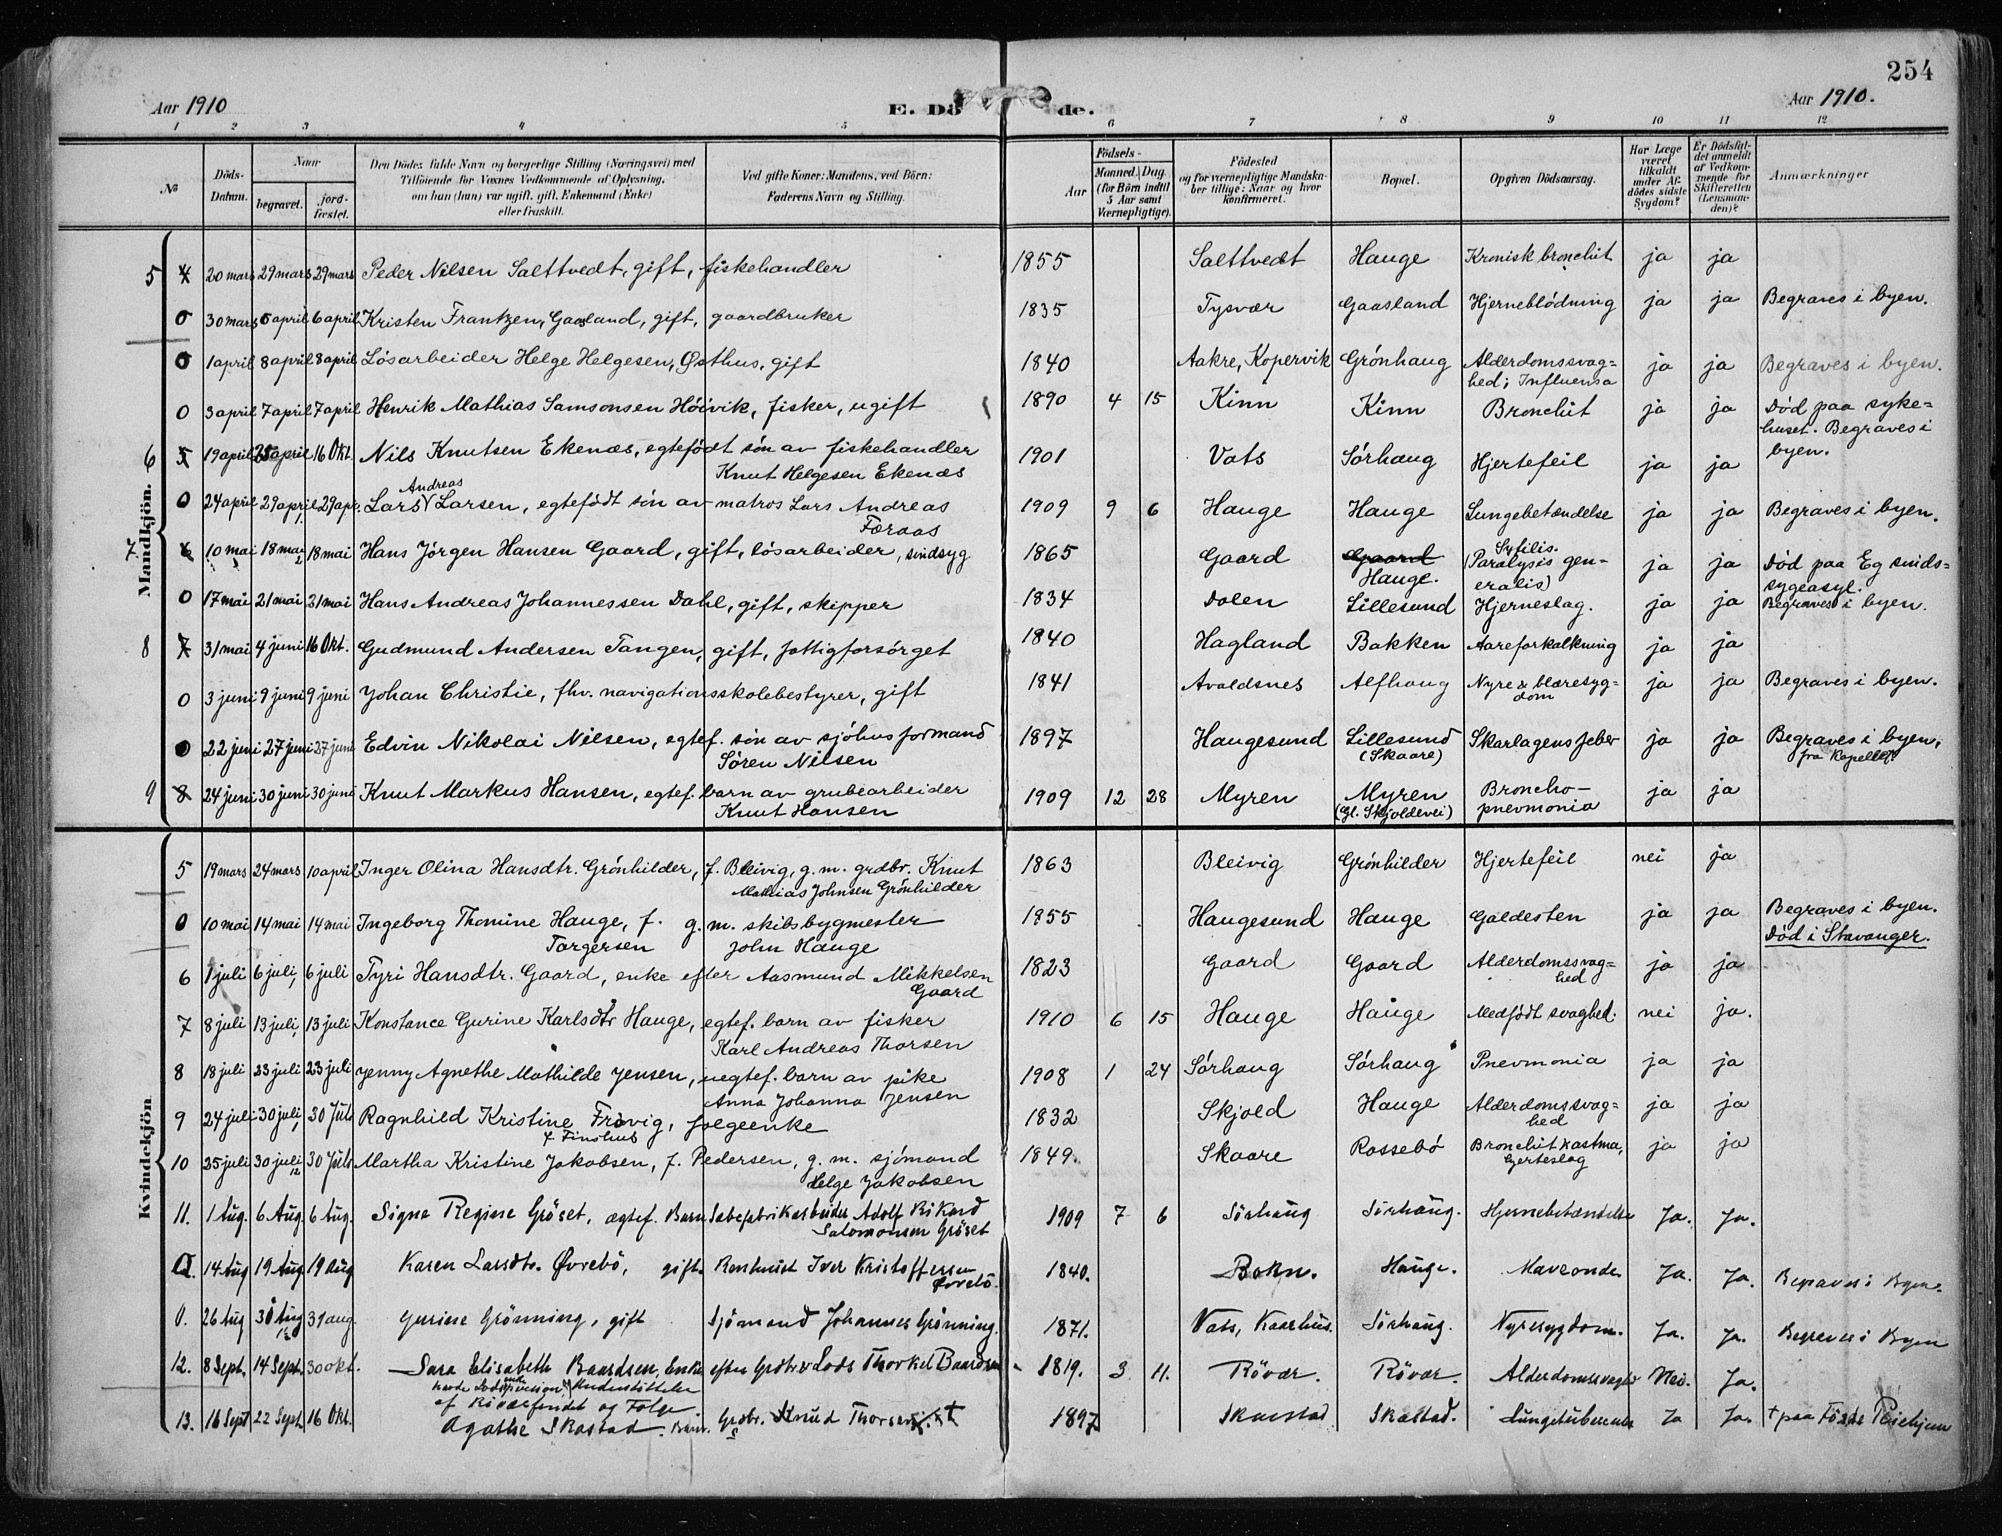 254
Aar 1910 E. Dö de. Aar 1910.
1 2 3 4 5 6 7 8 9 10 11 12
№ Döds-Datum. Naar begravet. jord-festet. Den Dödes fulde Navn og borgerlige Stilling (Næringsvei) med Tilföiende for Voxnes Vedkommende af Oplysning, om han (hun) var ugift, gift, Enkemand (Enke) eller fraskilt. Ved gifte Koner: Mandens, ved Börn: Faderens Navn og Stilling. Aar Födsels- Maaned. Dag. (for Börn indtil 5 Aar samt Værnepligtige). Födested og for værnepligtige Mandska-ber tillige: Naar og hvor konfirmeret. Bopæl. Opgiven Dödsaarsag. Har Læge været tilkaldt under Af-dödes sidste Sygdom? Er Dödsfal-det anmeldt af Vedkom-mende for Skifteretten (Lensman-den)? Anmærkninger
Mandkjön.
5 4 20 mars 29 mars 29 mars Peder Nilsen Salttvedt, gift, fiskehandler 1855 Salttvedt Hauge Kronisk bronchit ja ja
0 30 mars 6 april 6 april Kristen Frantzen, Gaasland, gift, gaardbruker 1835 Tysvær Gaasland Hjerneblödning ja ja Begraves i byen.
0 1 april 8 april 8 april Lösarbeider Helge Helgesen, Østhus, gift 1840 Aakre, Kopervik Grönhaug Alderdomssvag=
hed; Influensa ja ja Begraves i byen.
0 3 april 7 april 7 april Henrik Mathias Samsonsen Höivik, fisker, ugift 1890 4 15 Kinn Kinn Bronchit ja ja Död paa syke=
huset. Begraves i
byen.
6 5 19 april 25 april 16 Okt. Nils Knutsen Ekenæs, egtefödt sön av fiskehandler 1901 Vats Sörhaug Hjertefeil ja ja
Knut Helgesen Ekenæs
Andreas
0 24 april 29 april 29 apr. Lars Larsen, egtefödt sön av matros Lars Andreas 1909 9 6 Hauge Hauge Lungebetændelse ja ja Begraves i byen.
Færaas
7 6 10 mai 18 mai 18 mai Hans Jörgen Hansen Gaard, gift, lösarbeider, sindsyg 1865 Gaard Gaard Hauge. Syfilis.
(Paralysis gen-
eralis) ja ja Död paa Eg sinds=
sygeasyl.
0 17 mai 21 mai 21 mai Hans Andreas Johannessen Dahl, gift, skipper 1834 Dalen Lillesund Hjerneslag. ja ja Begraves i byen.
8 7 31 mai 4 juni 16 Okt. Gudmund Andersen Tangen, gift, fattigforsörget 1840 Hagland Bakken Aareforkalkning ja ja
0 3 juni 9 juni 9 juni Johan Christie, fhv. navigationsskolebestyrer, gift 1841 Avaldsnes Alfhaug Nyre & blæresyg=
dom ja ja Begraves i byen.
0 22 juni 27 juni 27 juni Edvin Nikolai Nilsen, egtef. sön av sjöhusformand 1897 Haugesund Lillesund (Skaare) Skarlagensfeber ja ja Begraves i byen,
Sören Nilsen fra Kapellet
9 8 24 juni 30 juni 30 juni Knut Markus Hansen, egtef. barn av grubearbeider 1909 12 28 Myren Myren (Gl. Skjoldevei) Broncho-
pnevmonia ja ja
Knut Hansen
Kvindekjön
5 19 mars 24 mars 10 april Inger Olina Hansdtr. Grönhilder, f. Bleivig, g. m. grdbr. Knut 1863 Bleivig Grönhilder Hjertefeil nei ja
Mathias Johnsen Grönhilder
0 10 mai 14 mai 14 mai Ingeborg Thomine Hauge, f. g. m. skibsbygmester 1855 Haugesund Hauge Galdesten ja ja Begraves i byen.
Torgersen John Hauge Död i Stavanger.
6 1 juli 6 juli 6 juli Tyri Hansdtr. Gaard, enke efter Aasmund Mikkelsen 1823 Gaard Gaard Alderdomssvag=
hed ja ja
Gaard
7 8 juli 13 juli 13 juli Konstance Gurine Karlsdtr Hauge, egtef. barn av fisker 1910 6 15 Hauge Hauge Medfödt svaghed. nei ja.
Karl Andreas Thorsen
8 18 juli 23 juli 23 juli Jenny Agnethe Mathilde Jensen, uegtef. barn av pike 1908 1 24 Sörhaug Sörhaug Pnevmonia ja ja
Anna Johanna Jensen
9 24 juli 30 juli 30 Juli Ragnhild Kristine Frövig, folgeenke 1832 Skjold Hauge Alderdomssvag=
hed ja ja
10 25 juli 30 juli 30 Juli Martha Kristine Jakobsen, f. Pedersen, g. m. sjömand 1849. Skaare Rossebö Bronchit & astma,
Hjerteslag ja ja
Helge Jakobsen
11. 1 Aug. 6 Aug. 6 Aug. Signe Regine Gröset, ægtef. Barn Sæbefabrikarbeider Adolf Rikard 1909 7 6 Sörhaug Sörhaug. Hjernebetændelse Ja. Ja.
Salomonsen Gröset
0. 14 Aug 19 Aug 19 Aug Karen Larsdtr. Øvrebö, gift. Iver Kristoffersen 1840. Bokn. Hauge. Maveonde Ja. Ja. Begraves i Byen.
Øvrebö.
0. 26 Aug 30 Aug 31 aug. Gurine Grönning, gift Sjömand Johannes Grönning. 1871. Vats, Sörhaug. Nyresygdom. Ja. Ja. Begraves i Byen
12. 8 Sept. 14 Sept. 30 okt. Sara Elisabeth Baardsen, Enke efter Lods Thorkel Baardsen 1819. 3 11. Rövær. Rövær. Alderdomssvaghed Nei. Ja.
og Folge
13. 16 Sept 22 Sept. 16 Okt. Agathe Skastad. Barn. Grdbr. Knud Thorsen 1897 Skaastad Skastad. Lungetuberculose Ja Ja. † paa